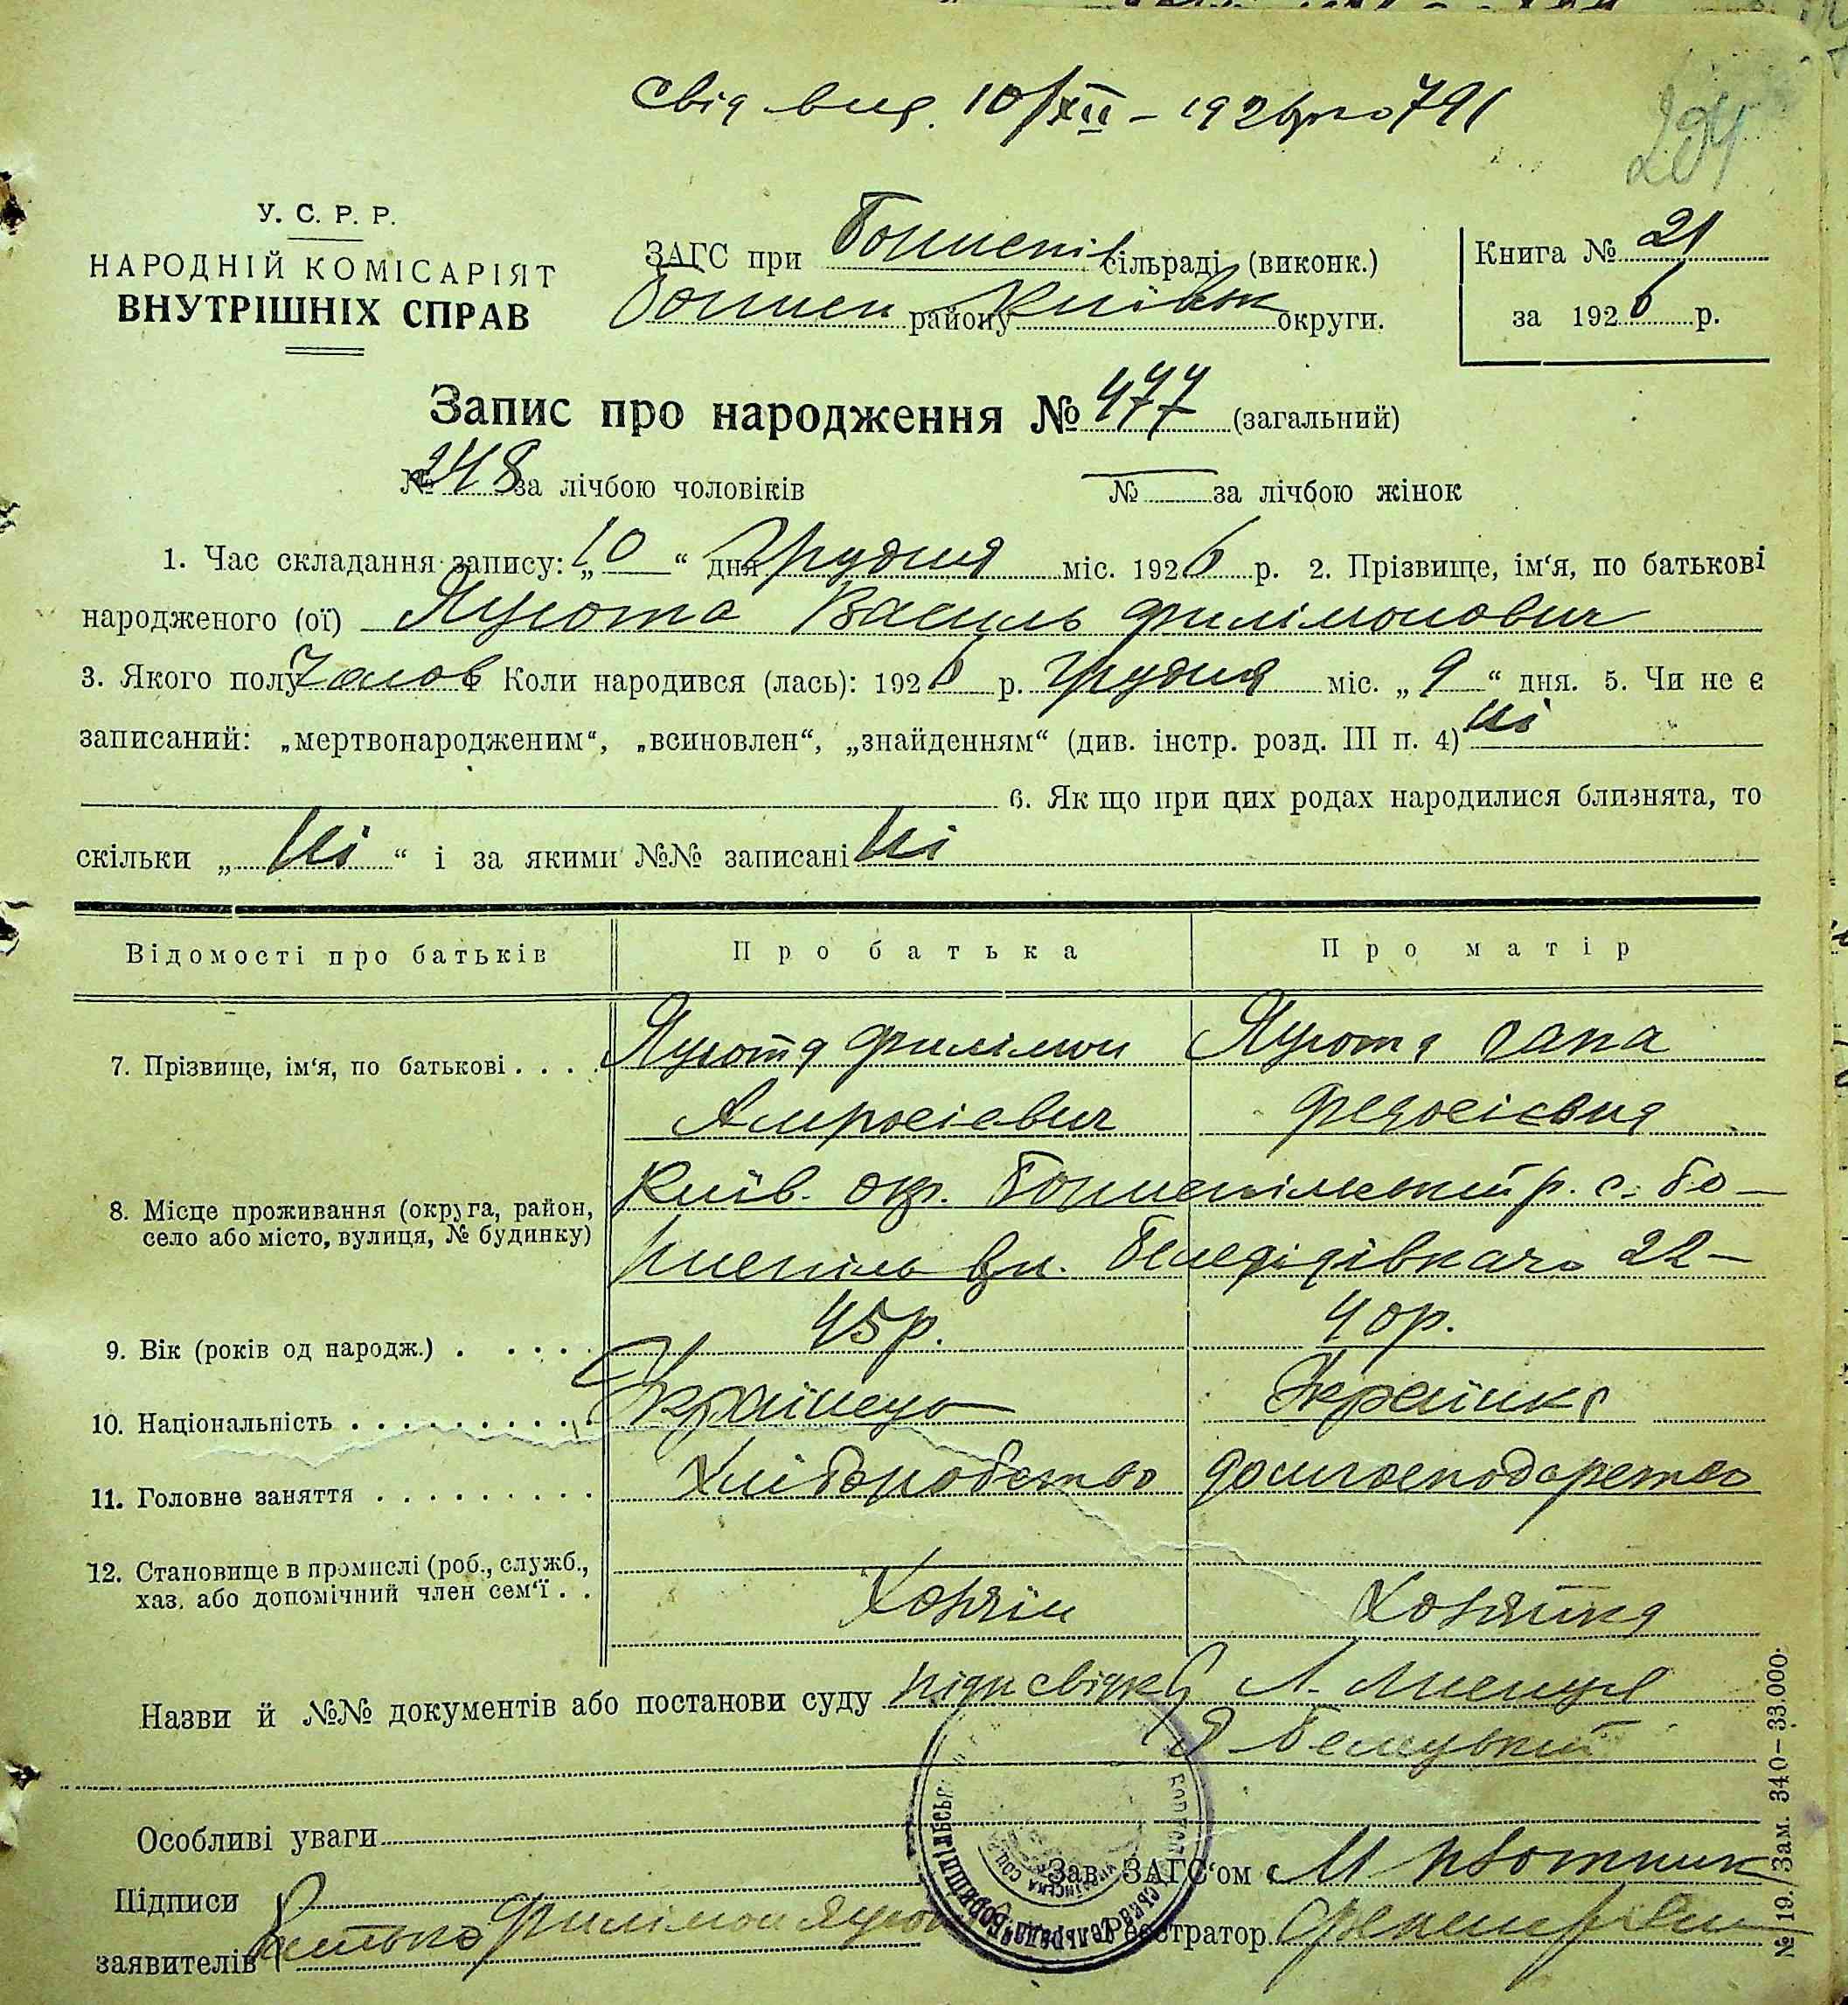 Свід вид. 10/XII – 1926 р. № 791
294
У. С. Р. Р.
НАРОДНІЙ КОМІСАРІЯТ
ВНУТРІШНІХ СПРАВ
ЗАГС при Бориспіл сільраді (виконк.)
Борисп району Київськ округи.
Книга № 21
за 1926 р.
Запис про народження № 477 (загальний)
№ 248 за лічбою чоловіків № — за лічбою жінок
1. Час складання запису: „10“ дня Грудня міс. 1926 р. 2. Прізвище, ім‘я, по батькові
народженого (ої) Василь Филімонович
3. Якого полу Чолов 4 Коли народився (лась): 1926 р. Грудня міс. „9“ дня. 5. Чи не є
записаний: „мертвонародженим“, „всиновлен“, „знайденням“ (див. інстр. розд. III п. 4) Ні
6. Як що при цих родах народилися близнята, то
скільки „Ні“ і за якими №№ записані Ні
Відомості про батьків Про батька Про матір
7. Прізвище, ім‘я, по батькові . . . . Филімон Гапа
Амросієвич Федосієвна
8. Місце проживання (округа, район, село або місто, вулиця, № будинку) Київ. окр. Бориспільський р. с. Бо-
риспіль вул. № 22 –
9. Вік (років од народж.) . . . . . 45 р. 40 р.
10. Національність . . . . . . . . . . Українець Українка
11. Головне заняття . . . . . . . . . Хліборобство Домгосподарство
12. Становище в промислі (роб., служб.,
хаз. або допомічний член сем‘ї . . Хозяїн Хозяйка
Назви й №№ документів або постанови суду підп свідків Л.
Я Белецький
Особливі уваги
Зав. ЗАГС‘ом М
Підписи
заявителів Батько Филімон
Реєстратор
№ 19. Зам. 340–33.000.